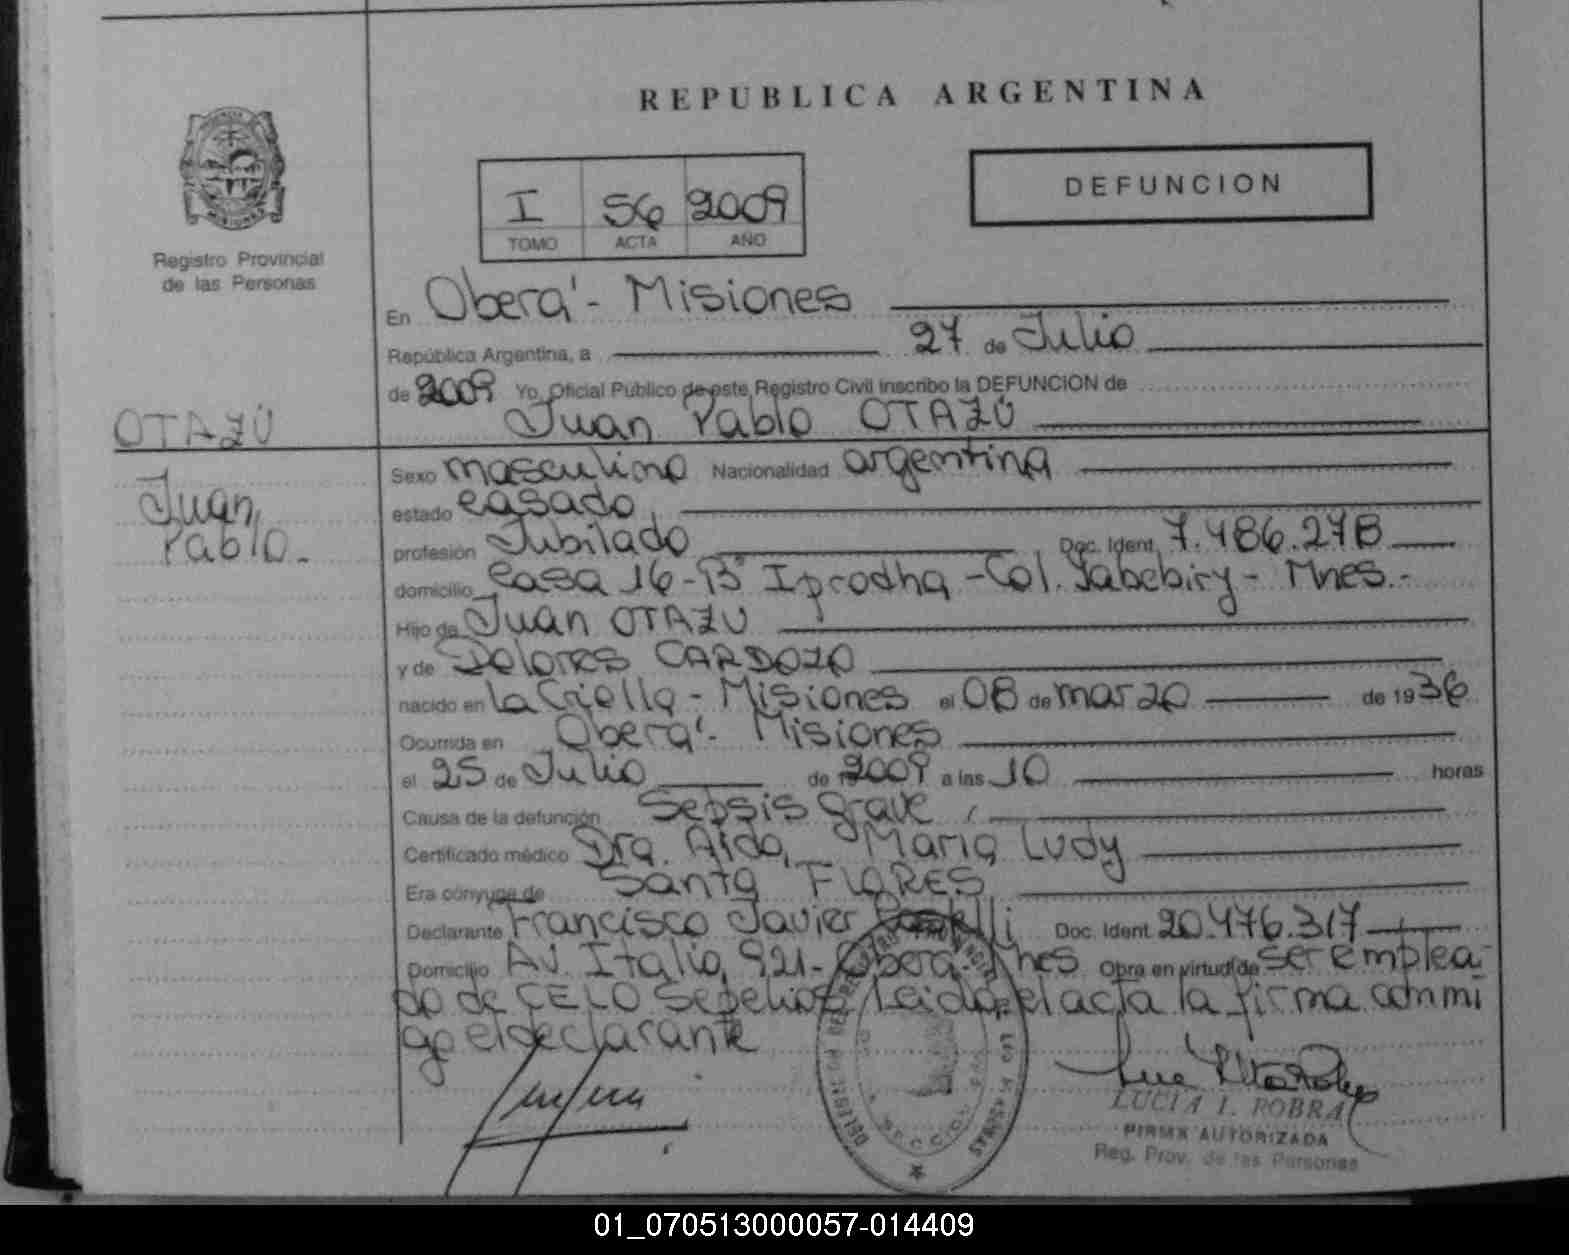 REPUBLICA ARGENTINA
DEFUNCION
I 56 2009
TOMO ACTA AÑO
Registro Provincial
de las Personas
En Oberá - Misiones
República Argentina, a 27 de Julio
de 2009 Yo, Oficial Público de este Registro Civil inscribo la DEFUNCION de
Juan Pablo OTAZÚ
OTAZÚ
Juan
Pablo.-
Sexo masculino Nacionalidad argentina
estado casado
profesión Jubilado Doc. Ident. 7.486.278
domicilio Casa 16-B° Iprodha - Col. Yabebiry - Mnes.-
Hijo de Juan OTAZU
y de Dolores CARDOZO
nacido en La Criolla - Misiones el 08 de marzo de 1936
Ocurrida en Oberá - Misiones
el 25 de Julio de 2009 a las 10 horas
Causa de la defunción Sepsis grave
Certificado médico Dra. Aida María Ludy
Era cónyuge de Santa FLORES
Declarante Francisco Javier Doc. Ident. 20.476.317
Domicilio Av. Italia 921 - Oberá - Mnes Obra en virtud de ser emplea-
do de CELO Sepelios Leida el acta la firma conmi
go el declarante
LUCIA I. ROBRA
FIRMA AUTORIZADA
Reg. Prov. de las Personas
01_070513000057-014409